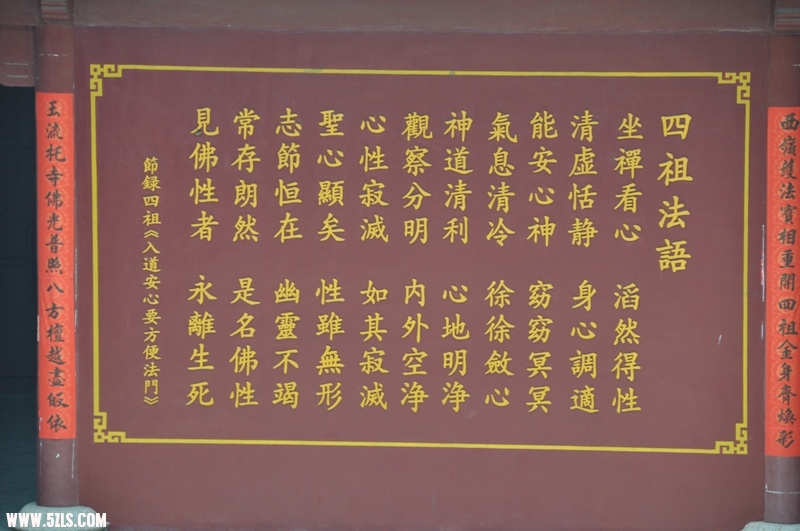 西嶺護法寶相重開四祖金身齊煥形
四祖法語
坐禪看心 滔然得性
清虛恬静 身心調適
能安心神 窈窈冥冥
氣息清冷 徐徐斂心
神道清利 心地明浄
觀察分明 内外空浄
心性寂滅 如其寂滅
聖心顯矣 性雖無形
志節恒在 幽靈不竭
常存朗然 是名佛性
見佛性者 永離生死
節録四祖《入道安心要方便法門》
玉流托寺佛光普照八方檀越盡皈依
WWW.5ZLS.COM